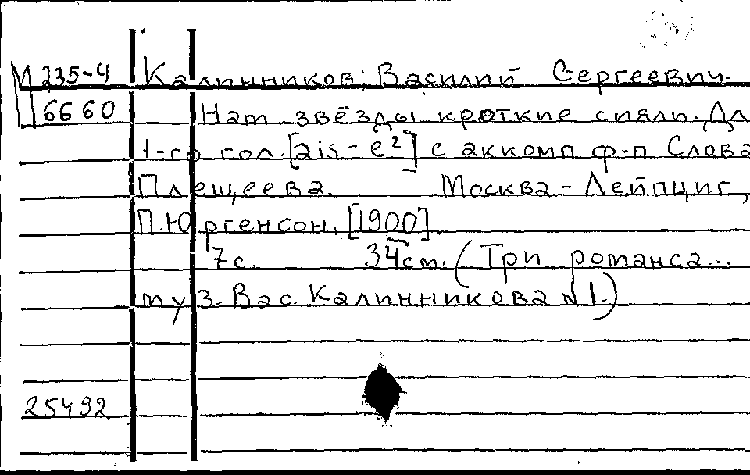 М 235-4 Калинников, Василий Сергеевич.
6660 Нам звёзды кроткие сияли. Дл
1-го гол. [ais - e²] с аккомп ф-п Слова
Плещеева. Москва - Лейпциг,
П. Юргенсон, [1900]
7 с. 34 см. (Три романса...
муз. Вас. Калинникова №1.)
25492